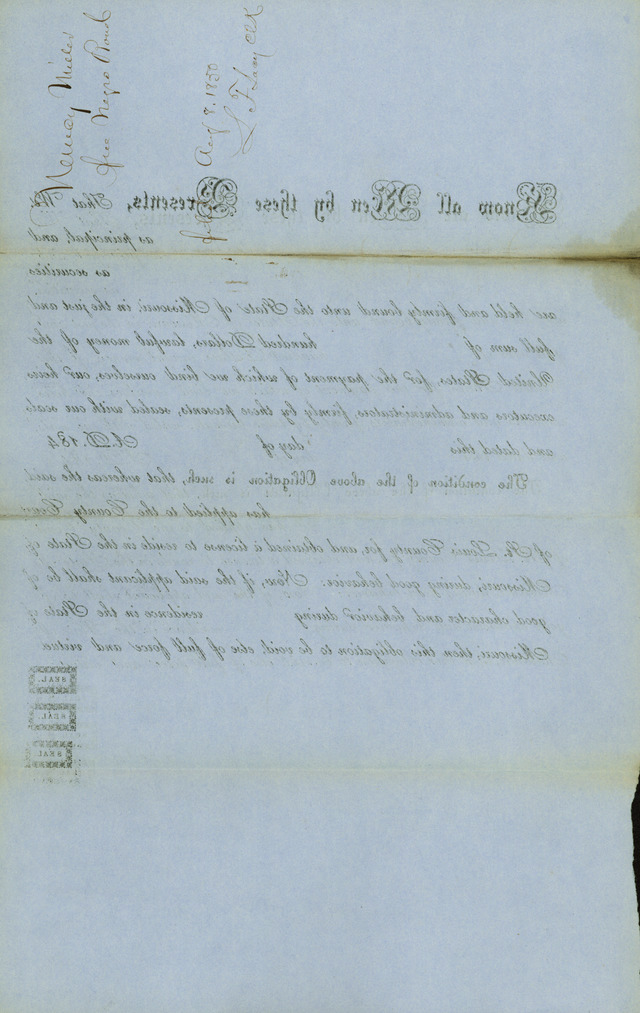 Nancy Miller
free Negro Bond
Aug 8. 1850
Know all Men by these Presents, That We
as principal, and
as securities
are held and firmly bound unto the State of Missouri, in the just and
full sum of hundred Dollars, lawfull money of the
United States, for the payment of which we bind ourselves, our heirs
executors and administrators, firmly by these presents, sealed with our seals
and dated this day of A.D. 184
The condition of the above Obligation is such, that whereas the said
has applied to the County Cour
of St. Louis County for, and obtained a license to reside in the State of
Missouri, during good behavior: Now, if the said applicant shall be of
good character and behavior during residence in the State of
Missouri, then this obligation to be void, else of full force and virtue
SEAL.
SEAL.
SEAL.